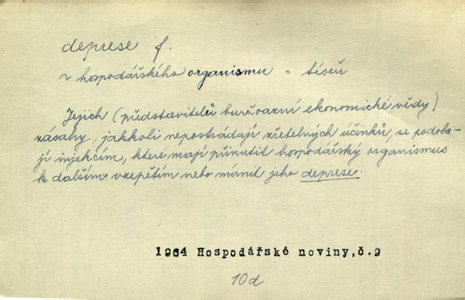 deprese f.
z hospodářského organismu = tíseň
Jejich (představitelů buržoazní ekonomické vědy)
zásahy, jakkoli nepostrádají zřetelných účinků, se podoba-
jí injekcím, které mají přinutit hospodářský organismus
k dalším vzepětím nebo mírnit jeho deprese.
1964 Hospodářské noviny, č. 9
10d